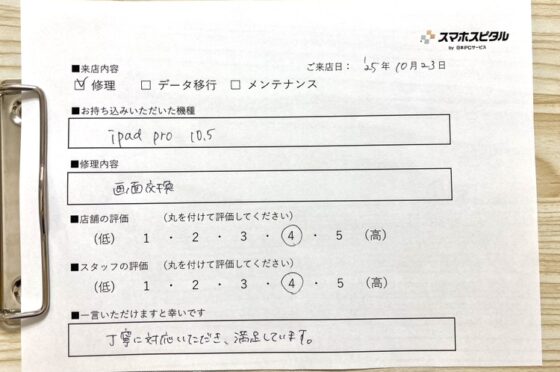 スマホスピタル
by 日本PCサービス
■来店内容
ご来店日： '25年 10月23日
☑ 修理 □ データ移行 □ メンテナンス
■お持ち込みいただいた機種
ipad pro 10.5
■修理内容
画面交換
■店舗の評価 （丸を付けて評価してください）
（低） 1 ・ 2 ・ 3 ・ 4 ・ 5 （高）
■スタッフの評価 （丸を付けて評価してください）
（低） 1 ・ 2 ・ 3 ・ 4 ・ 5 （高）
■一言いただけますと幸いです
丁寧に対応いただき、満足しています。